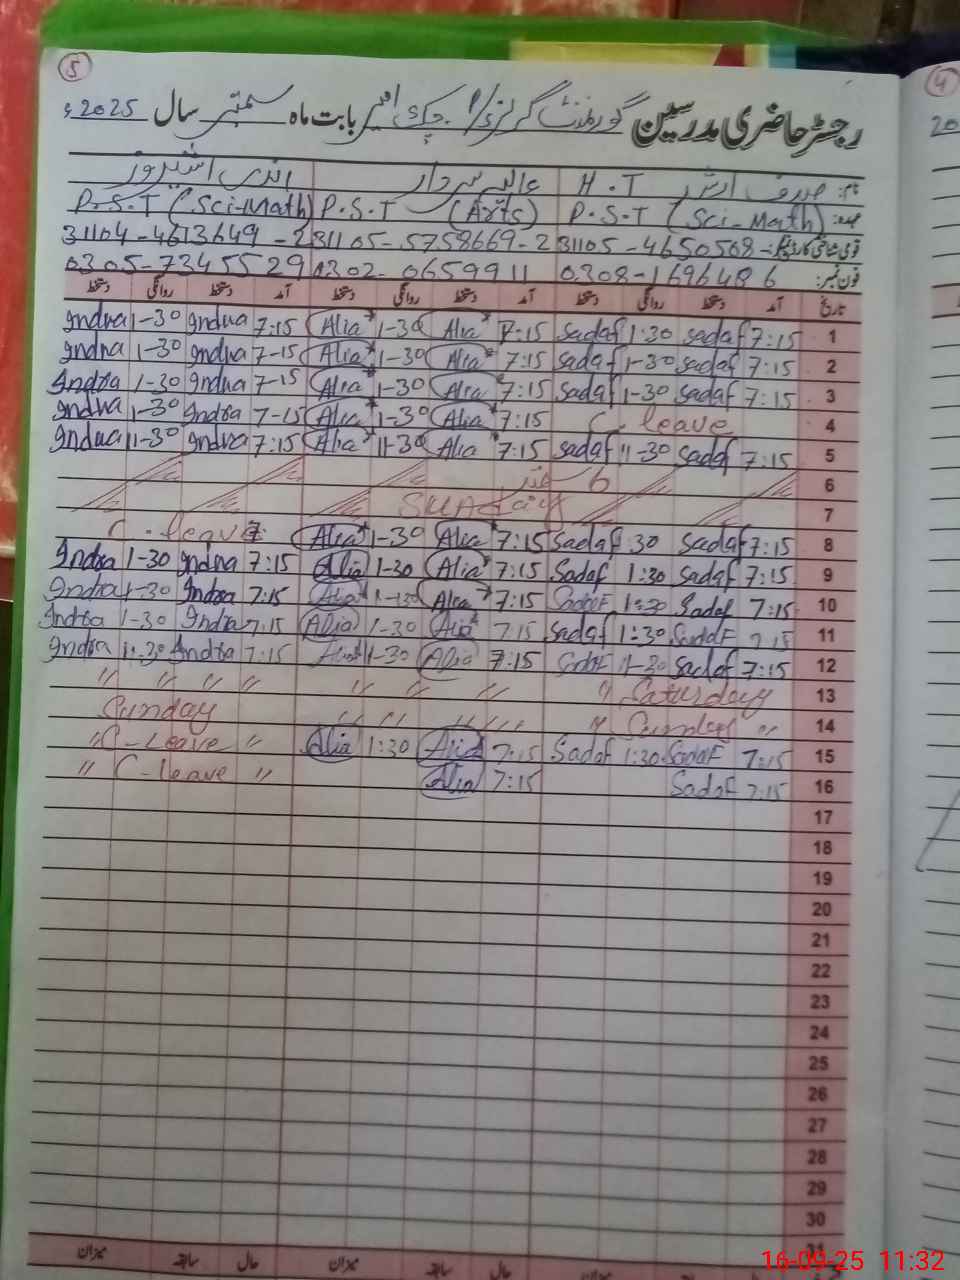 5
رجسٹر حاضری مدرسین گورنمنٹ گرلز بابت ماہ ستمبر سال 2025ء
4
20
نام: صدف H.T عالیہ سردار
عہدہ: P.S.T (Sci-Math) P.S.T (Arts) P.S.T (Sci-Math)
قومی شناختی کارڈ نمبر: 31105-4650508- 31105-5758669-2 31104-4613649-2
فون نمبر: 0308-1696486 0302-0659911 0305-7345529
تاریخ آمد دستخط روانگی دستخط آمد دستخط روانگی دستخط آمد دستخط روانگی دستخط
1 7:15 Sadaf 1:30 Sadaf 7:15 Alia 1-30 Alia 7:15 Indra 1-30 Indra
2 7:15 Sadaf 1-30 Sadaf 7:15 Alia 1-30 Alia 7-15 Indra 1-30 Indra
3 7:15 Sadaf 1-30 Sadaf 7:15 Alia 1-30 Alia 7-15 Indra 1-30 Indra
4 C. leave 7:15 Alia 1-30 Alia 7-15 Indra 1-30 Indra
5 7:15 Sadaf 11-30 Sadaf 7:15 Alia 11-30 Alia 7:15 Indra 11-30 Indra
6 6 ستمبر
7 Sunday
8 7:15 Sadaf 1:30 Sadaf 7:15 Alia 1-30 Alia C. leave
9 7:15 Sadaf 1:30 Sadaf 7:15 Alia 1-30 Alia 7:15 Indra 1-30 Indra
10 7:15 Sadaf 1:30 Sadaf 7:15 Alia 1-30 Alia 7:15 Indra 1-30 Indra
11 7:15 Sadaf 1:30 Sadaf 7:15 Alia 1-30 Alia 7:15 Indra 1-30 Indra
12 7:15 Sadaf 11-30 Sadaf 7:15 Alia 1-30 Alia 7:15 Indra 11-30 Indra
13 Saturday " " " " " " " "
14 " Sunday " " " " " " Sunday
15 7:15 Sadaf 1:30 Sadaf 7:15 Alia 1:30 Alia " C-Leave "
16 7:15 Sadaf 7:15 Alia " C-leave "
17
18
19
20
21
22
23
24
25
26
27
28
29
30
31
حال سابقہ میزان حال سابقہ میزان
16-09-25 11:32